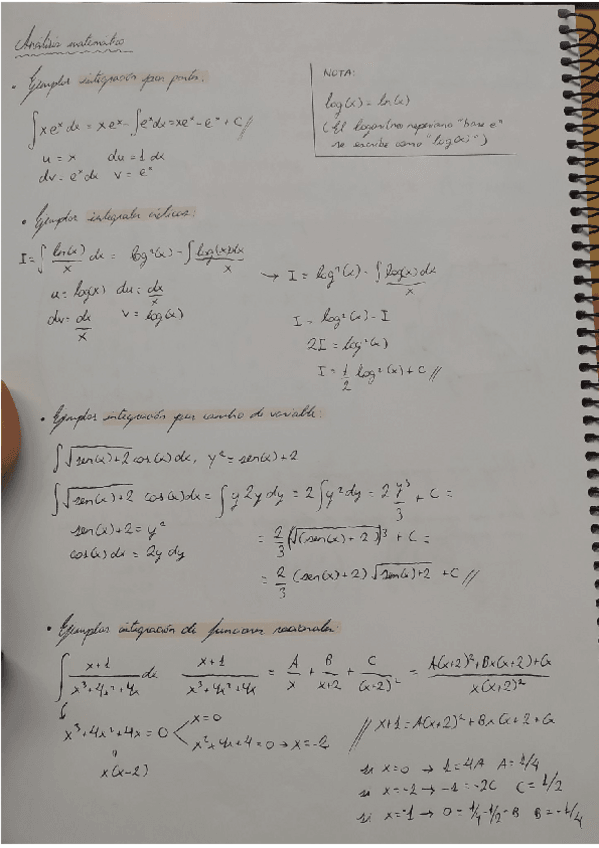 Análisis matemático
• Ejemplos integración por partes:
∫ x eˣ dx = x eˣ - ∫ eˣ dx = x eˣ - eˣ + C //
u = x du = 1 dx
dv = eˣ dx v = eˣ
NOTA:
log(x) = ln(x)
(El logaritmo neperiano "base e"
se escribe como "log(x)")
• Ejemplos integrales cíclicas:
I = ∫ ln(x)/x dx = log²(x) - ∫ log(x) dx/x
u = log(x) du = dx/x
dv = dx/x v = log(x)
→ I = log²(x) - ∫ log(x) dx/x
I = log²(x) - I
2I = log²(x)
I = 1/2 log²(x) + C //
• Ejemplos integración por cambio de variable:
∫ √(sen(x)+2) cos(x) dx, y² = sen(x) + 2
∫ √(sen(x)+2) cos(x) dx = ∫ y 2y dy = 2 ∫ y² dy = 2 y³/3 + C =
sen(x) + 2 = y²
cos(x) dx = 2y dy
= 2/3 (√(sen(x)+2))³ + C =
= 2/3 (sen(x)+2) √(sen(x)+2) + C //
• Ejemplos integración de funciones racionales:
∫ x+1/x³+4x²+4x dx x+1/x³+4x²+4x = A/x + B/x+2 + C/(x+2)² = A(x+2)²+Bx(x+2)+Cx/x(x+2)²
x³+4x²+4x = 0 x=0
x²+4x+4=0 → x=-2
x(x-2)
// x+1 = A(x+2)²+Bx(x+2+Cx
si x=0 → 1=4A A=1/4
si x=-2 → -1=-2C C=1/2
si x=-1 → 0=1/4-1/2-B B=-1/4